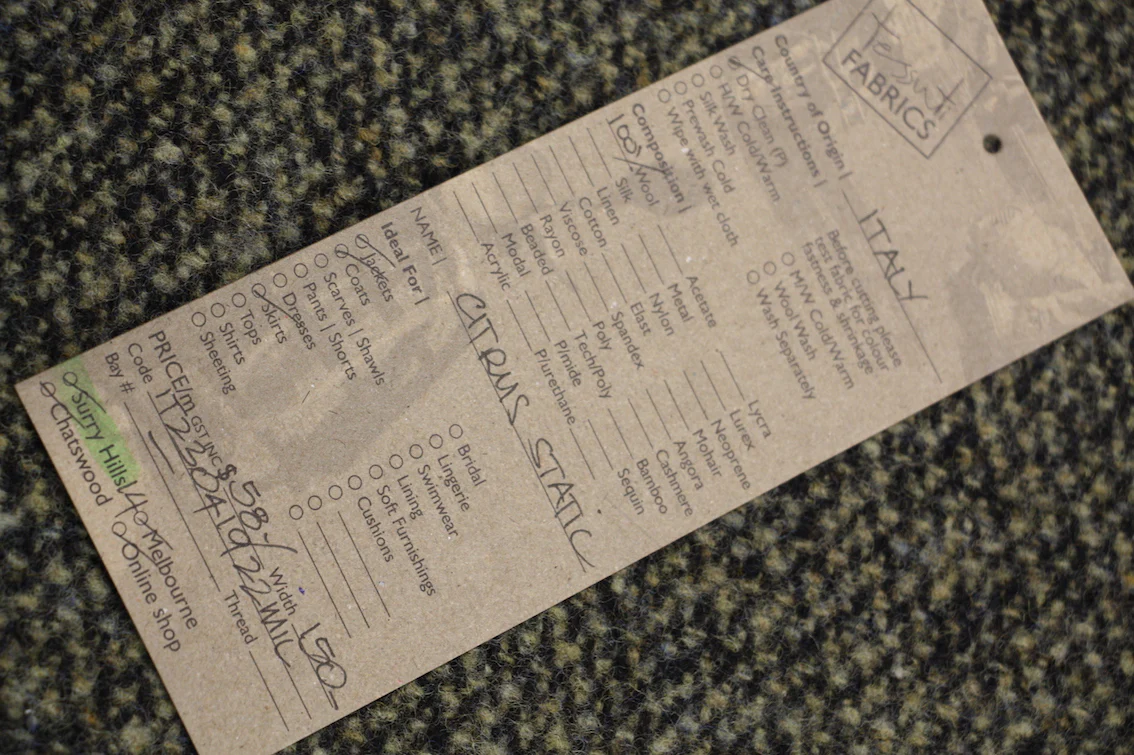 Tessuti
FABRICS
Country of Origin | ITALY
Care Instructions |
Before cutting please
test fabric for colour
fastness & shrinkage
Dry Clean (P)
H/W Cold/Warm
Silk Wash
Prewash Cold
Wipe with wet cloth
M/W Cold/Warm
Wool Wash
Wash Separately
Composition |
100% Wool
Silk
Linen
Cotton
Viscose
Rayon
Beaded
Modal
Acrylic
Acetate
Metal
Nylon
Elast
Spandex
Poly
Tech/Poly
P/mide
P/urethane
Lycra
Lurex
Neoprene
Mohair
Angora
Cashmere
Bamboo
Sequin
NAME | CITRUS STATIC
Ideal For |
Jackets
Coats
Scarves | Shawls
Pants | Shorts
Dresses
Skirts
Tops
Shirts
Sheeting
Bridal
Lingerie
Swimwear
Lining
Soft Furnishings
Cushions
PRICE/m GST INC. $58- Width 150
Code
Bay # Thread
Surry Hills Melbourne
Chatswood Online shop